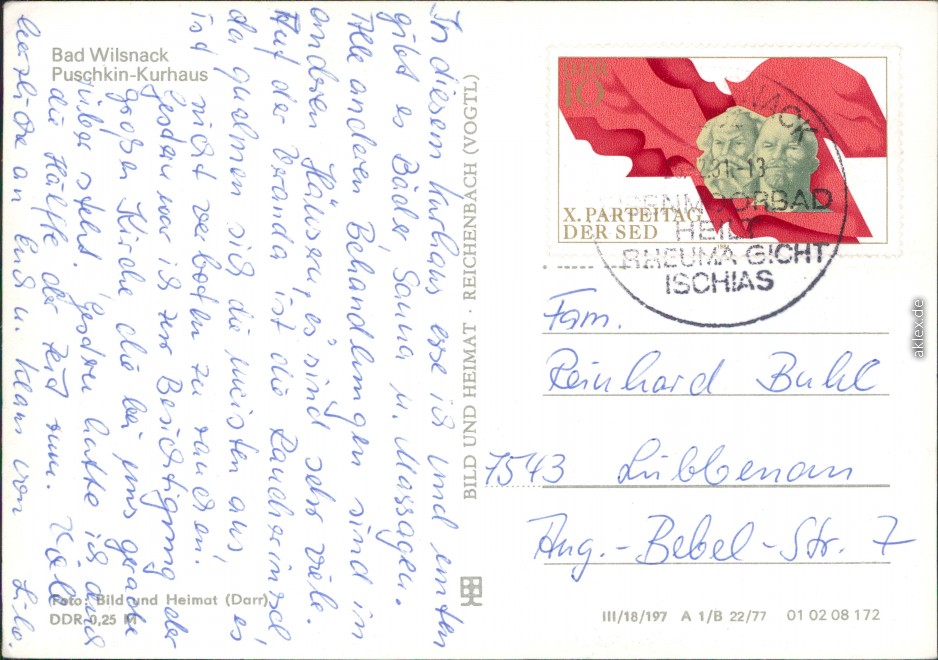 Bad Wilsnack
Puschkin-Kurhaus
In diesem Kurhaus esse ich und unten
gibt es Bäder Sauna u. Massagen.
Alle anderen Behandlungen sind in
anderen Häusern, es sind sehr viele.
Auf der Veranda ist die Raucherinsel
da qualmen sich die meisten aus, es
ist nicht verboten zu rauchen.
Gestern war ich zur Besichtigung der
großen Kirche die bei uns gerade
rüber steht. Gestern hatte ich auch
die Hälfte der Zeit rum. Viele
herzliche an Euch u. Klaus von Lilo.
Foto: Bild und Heimat (Darr)
DDR 0,25 M
BILD UND HEIMAT · REICHENBACH (VOGTL)
DDR
10
X. PARTEITAG
DER SED
1981
81-13
EISENMOORBAD
HEILT
RHEUMA GICHT
ISCHIAS
Fam.
Reinhard Buhl
7543 Lübbenau
Aug.-Bebel-Str. 7
III/18/197 A 1/B 22/77 01 02 08 172
aklex.de